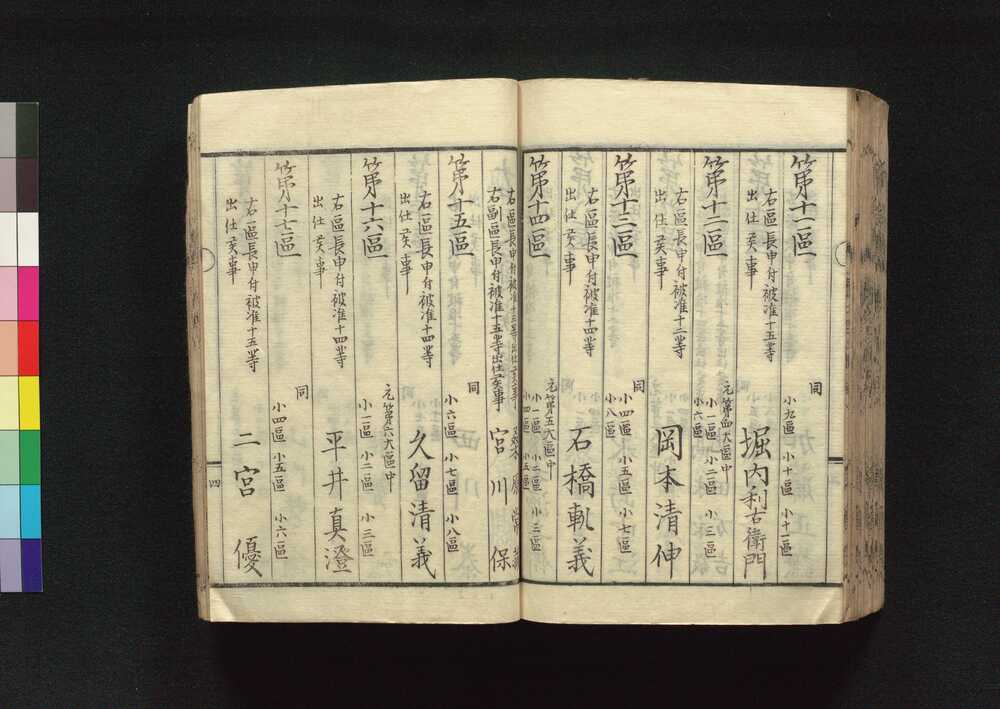 第十一區
同
小九區 小十區 小十一區
右區長申付被准十五等
出仕候事
堀内利右衛門
第十二區
元第四大區中
小一區 小二區 小三區
小六區
右區長申付被准十三等
出仕候事
岡本清伸
第十三區
同
小四區 小五區 小七區
小八區
右區長申付被准十四等
出仕候事
石橋軌義
第十四區
元第五大區中
小一區 小二區 小三區
小四區 小五區
右區長申付被准十三等出仕候事
右副區長申付被准十五等出仕候事
宮川保
第十五區
同
小六區 小七區 小八區
右區長申付被准十四等
出仕候事
久留清義
第十六區
元第六大區中
小一區 小二區 小三區
右區長申付被准十四等
出仕候事
平井真澄
第十七區
同
小四區 小五區 小六區
右區長申付被准十五等
出仕候事
二宮優
四